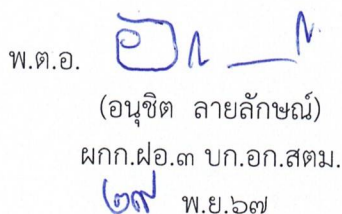 พ.ต.อ.
(อนุชิต ลายลักษณ์)
ผกก.ฝอ.๓ บก.อก.สตม.
๒๙ พ.ย.๖๗